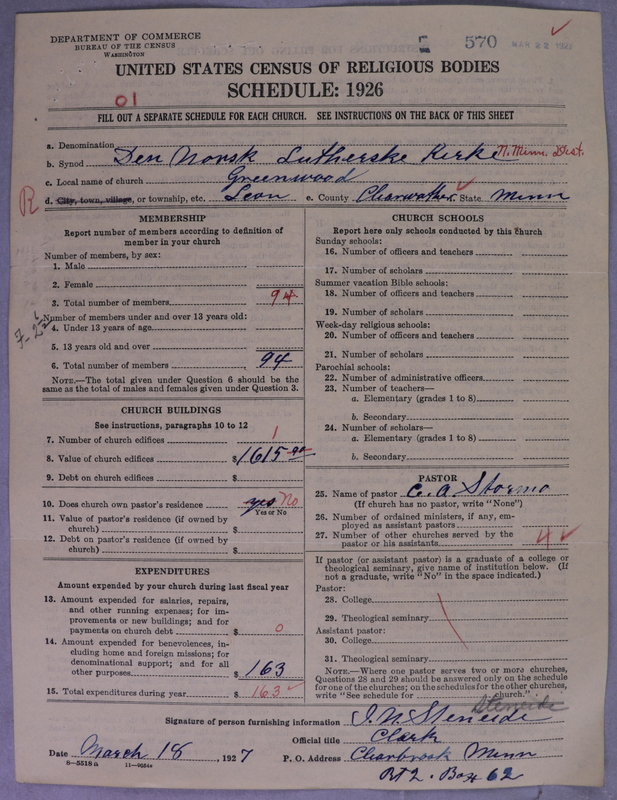 DEPARTMENT OF COMMERCE
BUREAU OF THE CENSUS
WASHINGTON
570 MAR 22
UNITED STATES CENSUS OF RELIGIOUS BODIES
SCHEDULE: 1926
01
FILL OUT A SEPARATE SCHEDULE FOR EACH CHURCH. SEE INSTRUCTIONS ON THE BACK OF THIS SHEET
a. Denomination
b. Synod Den Norsk Lutherske Kirke N. Minn. Dist.
c. Local name of church Greenwood
R d. City, town, village, or township, etc. Leon e. County Clearwater State Minn
MEMBERSHIP
Report number of members according to definition of member in your church
Number of members, by sex:
1. Male
2. Female
3. Total number of members 94
Number of members under and over 13 years old:
4. Under 13 years of age
5. 13 years old and over
6. Total number of members 94
NOTE.—The total given under Question 6 should be the
same as the total of males and females given under Question 3.
CHURCH BUILDINGS
See instructions, paragraphs 10 to 12
7. Number of church edifices 1
8. Value of church edifices $1615
9. Debt on church edifices $
10. Does church own pastor's residence yes No
Yes or No
11. Value of pastor's residence (if owned by
church) $
12. Debt on pastor's residence (if owned by
church) $
EXPENDITURES
Amount expended by your church during last fiscal year
13. Amount expended for salaries, repairs,
and other running expenses; for im-
provements or new buildings; and for
payments on church debt $ 0
14. Amount expended for benevolences, in-
cluding home and foreign missions; for
denominational support; and for all
other purposes $ 163
15. Total expenditures during year $ 163
CHURCH SCHOOLS
Report here only schools conducted by this church
Sunday schools:
16. Number of officers and teachers
17. Number of scholars
Summer vacation Bible schools:
18. Number of officers and teachers
19. Number of scholars
Week-day religious schools:
20. Number of officers and teachers
21. Number of scholars
Parochial schools:
22. Number of administrative officers
23. Number of teachers—
a. Elementary (grades 1 to 8)
b. Secondary
24. Number of scholars—
a. Elementary (grades 1 to 8)
b. Secondary
PASTOR
25. Name of pastor C. A. Stormo
(If church has no pastor, write "None")
26. Number of ordained ministers, if any, em-
ployed as assistant pastors
27. Number of other churches served by the
pastor or his assistants 4
If pastor (or assistant pastor) is a graduate of a college or
theological seminary, give name of institution below. (If
not a graduate, write "No" in the space indicated.)
Pastor:
28. College
29. Theological seminary
Assistant pastor:
30. College
31. Theological seminary
NOTE.—Where one pastor serves two or more churches,
Questions 28 and 29 should be answered only on the schedule
for one of the churches; on the schedules for the other churches,
write "See schedule for church."
Steneide
Signature of person furnishing information J. N. Steneide
Official title Clark
Date March 18, 1927 P. O. Address Clearbrook Minn
8-5518a 11-9054
Rt 2. Box 62